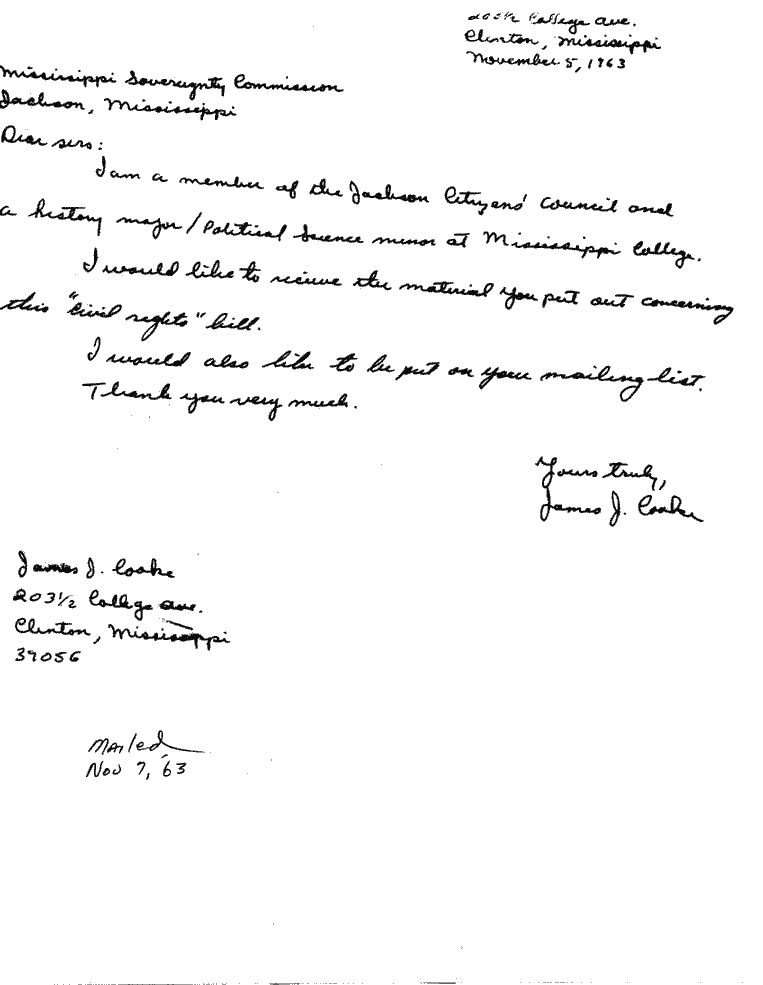 203½ College Ave.
Clinton, Mississippi
November 5, 1963
Mississippi Sovereignty Commission
Jackson, Mississippi
Dear sirs:
I am a member of the Jackson Citizens' Council and
a history major / Political Science minor at Mississippi College.
I would like to recieve the material you put out concerning
this "civil rights" bill.
I would also like to be put on your mailing list.
Thank you very much.
Yours truly,
James J. Cooke
James J. Cooke
203½ College Ave.
Clinton, Mississippi
39056
Mailed
Nov 7, '63